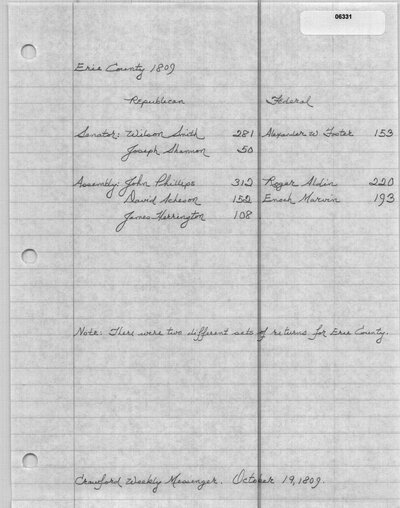 06331
Erie County 1809
Republican Federal
Senator: Wilson Smith 281 Alexander W Foster 153
Joseph Shannon 50
Assembly: John Phillips 312 Roger Aldin 220
David Acheson 152 Enoch Marvin 193
James Herrington 108
Note: There were two different sets of returns for Erie County.
Crawford Weekly Messenger. October 19, 1809.